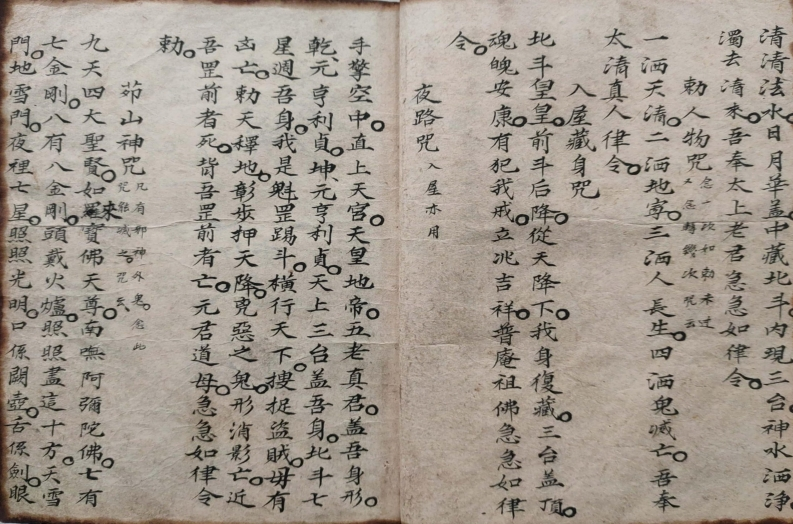 清清法水。日月華盖。中藏北斗。内現三台。神水洒淨。
濁去清來。吾奉太上老君急急如律令。
勅人物咒
一洒天清。二洒地寕。三洒人長生。四洒鬼滅亡。吾奉
太清真人律令。
入屋藏身咒
北斗皇皇。前斗后降。從天降下。我身復藏。三台盖頂。
魂魄安康。有犯我戒。立兆吉祥。普庵祖佛急急如律
令。
夜路咒 入屋亦用
手擎空中。直上天宫。天皇地帝。五老真君。盖吾身形。
乾元亨利貞。坤元亨利貞。天上三台盖吾身。北斗七
星週吾身。我是魁罡踢斗。橫行天下。搜捉盗賊。毋有
凶亡。勅天釋地。彰步押天降。兇惡之鬼。形消影亡。近
吾罡前者死。背吾罡前者亡。元君道母。急急如律令
勅。
茆山神咒 凡有邪神外鬼。念此
九天四大聖賢。如來寳佛天尊。南嘸阿彌陀佛。七有
七金剛。八有八金剛。頭戴火爐。照照盡這十方。天雪
門。地雪門。夜裡七星照照光明。口係開壺。舌係劍。眼